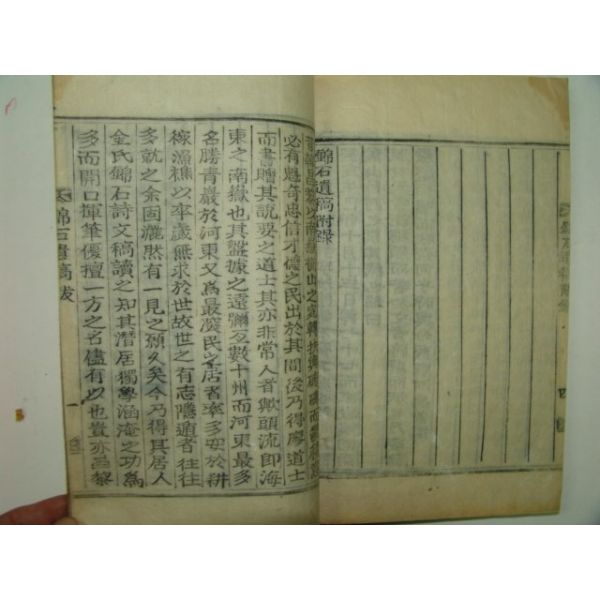 錦石遺稿附錄
以南山之轉扶輿磅礴而鬱積
必有魁奇忠信才德之民出於其間後乃得廖道士
而書贈其說要之道士其亦非常人者歟頭流卽海
東之南嶽也其盤據之遠彌亙數十州而河東最多
名勝靑巖於河東又爲最奧民之居者率多安於耕
稼漁樵以卒歲無求於世故世之有志隱遁者往往
多就之余固灑然有一見之願久矣今乃得其居人
金氏錦石詩文稿讀之知其潛居獨學涵淹之功爲
多而開口揮筆優擅一方之名儘有以也貴亦昌黎
錦石遺稿跋 一